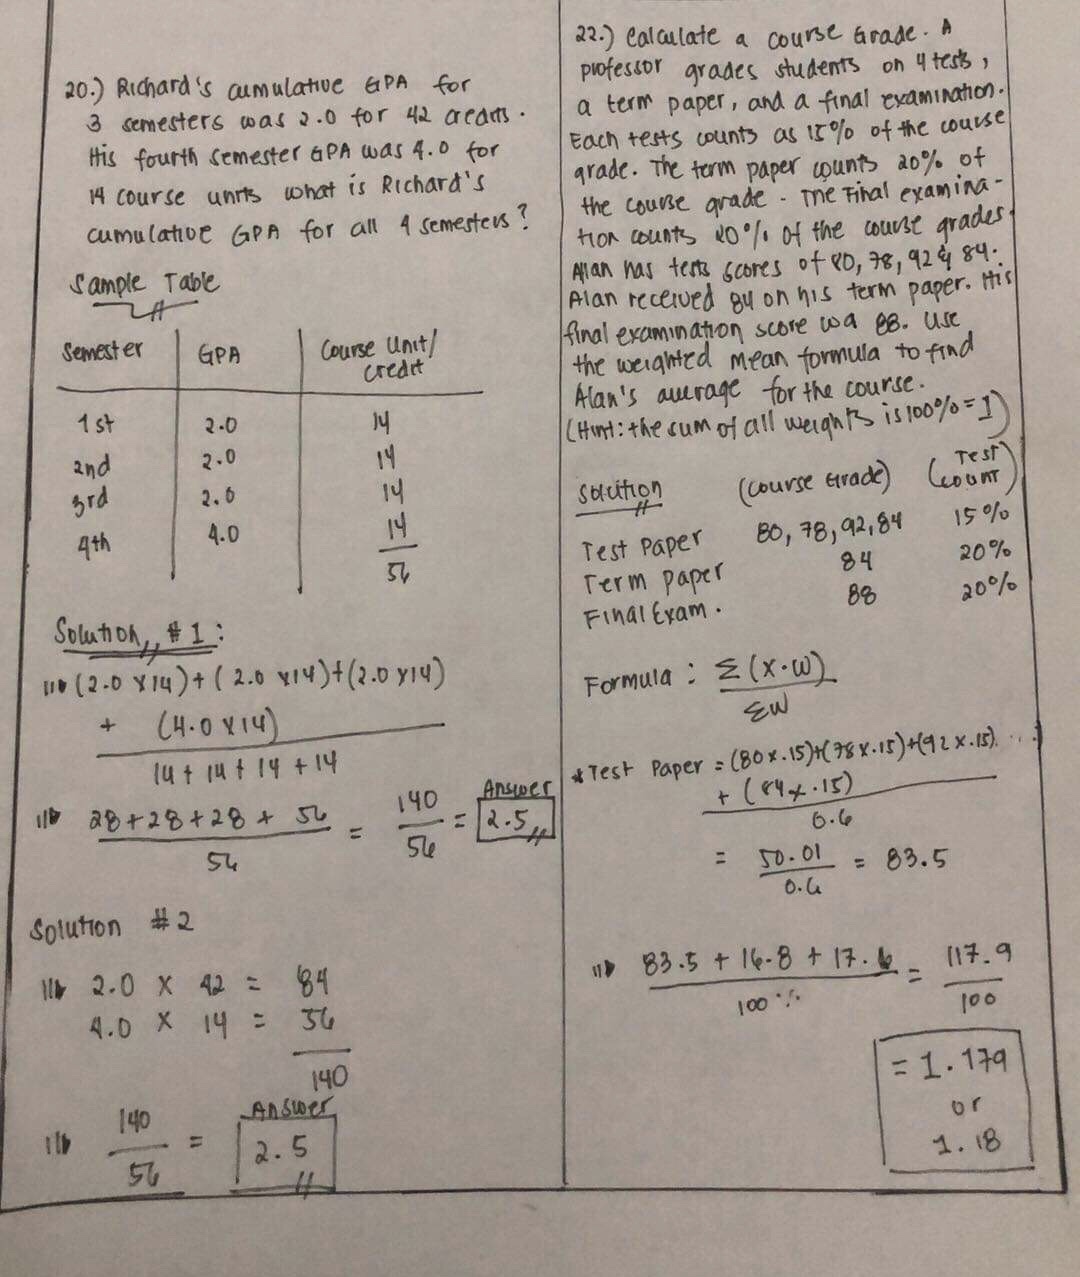 20.) Richard's cumulative GPA for
3 semesters was 2.0 for 42 credits.
His fourth semester GPA was 4.0 for
14 course units what is Richard's
cumulative GPA for all 4 semesters?
Sample Table
Semester GPA Course Unit/
credit
1st 2.0 14
2nd 2.0 14
3rd 2.0 14
4th 4.0 14
56
Solution #1:
(2.0 x 14) + (2.0 x 14) + (2.0 x 14)
+ (4.0 x 14)
14 + 14 + 14 + 14
28 + 28 + 28 + 56 = 140 = 2.5
Answer
56 56
Solution #2
2.0 x 42 = 84
4.0 x 14 = 56
140
Answer
140 = 2.5
56
22.) Calculate a course Grade. A
professor grades students on 4 tests,
a term paper, and a final examination.
Each tests counts as 15% of the course
grade. The term paper counts 20% of
the course grade. The Final examina-
tion counts 20% of the course grades.
Alan has tests scores of 80, 78, 92 & 84.
Alan received 84 on his term paper. His
final examination score wa 88. Use
the weighted mean formula to find
Alan's average for the course.
(Hint: the sum of all weights is 100% = 1)
Solution (Course Grade) (Test
count)
Test Paper 80, 78, 92, 84 15%
Term paper 84 20%
Final Exam. 88 20%
Formula : Σ (x·w)
Σw
* Test Paper = (80 x .15) + (78 x .15) + (92 x .15)
+ (84 x .15)
0.6
= 50.01 = 83.5
0.6
83.5 + 16.8 + 17.6 = 117.9
100% 100
= 1.179
or
1.18